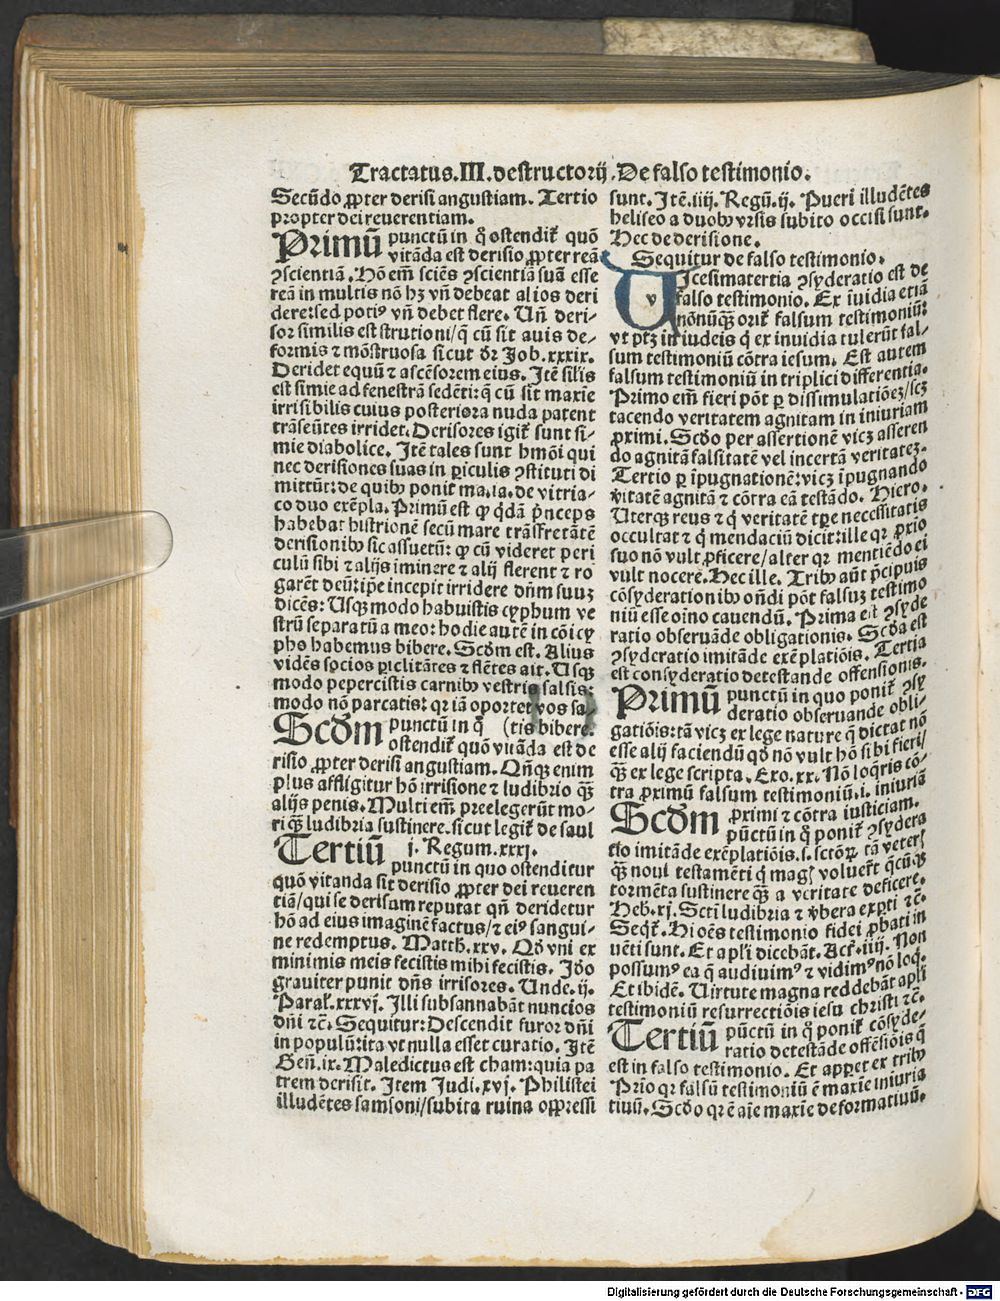 Tractatus.III.destructorij.De falso testimonio.
Secūdo ꝓpter derisi angustiam. Tertio
propter dei reuerentiam.
Primū punctū in q̊ ostendit᷑ quō
vitāda est derisio ꝓpter reā
ꝯscientiā. Hō em̄ sciēs ꝯscientiā suā esse
reā in multis nō hꝫ vn̄ debeat alios deri
dere: sed potiꝰ vn̄ debet flere. Un̄ deri-
sor similis est strutioni/q̄ cū sit auis de-
formis ⁊ mōstruosa sicut dr̄ Job.xxxix.
Deridet equū ⁊ ascēsorem eius. Itē silis
est simie ad fenestrā sedēti: q̄ cū sit maxīe
irrisibilis cuius posteriora nuda patent
trāseūtes irridet. Derisores igit᷑ sunt si-
mie diabolice. Itē tales sunt hmōi qui
nec derisiones suas in ꝑiculis ꝯstituti di
mittūt: de quibꝰ ponit ma.ia. de vitria-
co duo exēpla. Primū est ꝙ q̇dā pⁿceps
habebat histrionē secū mare trāsfretātē
derisionibꝰ sic assuetū: ꝙ cū videret peri
culū sibi ⁊ alijs iminere ⁊ alij flerent ⁊ ro
garēt deū: ip̄e incepit irridere dn̄m suuꝫ
dicēs: Usqꝫ modo habuistis cyphum ve
strū separatū a meo: hodie autē in cōi cy
pho habemus bibere. Scd̄m est. Alius
vidēs socios ꝑiclitātes ⁊ flētes ait. Usqꝫ
modo pepercistis carnibꝰ vestris salsis:
modo nō parcatis: qꝛ iā oportet vos sa-
Scd̄m punctū in q̊ (tis bibere.
ostendit᷑ quō vitāda est de
risio ꝓpter derisi angustiam. Qn̄qꝫ enim
plus affligitur hō irrisione ⁊ ludibrio qꝫ
alijs penis. Multi em̄ preelegerūt mo-
ri qꝫ ludibria sustinere. sicut legit᷑ de saul
Tertiū i. Regum.xxxj.
punctū in quo ostenditur
quō vitanda sit derisio ꝓpter dei reueren
tiā/qui se derisam reputat qn̄ deridetur
hō ad eius imaginē factus/⁊ eiꝰ sangui-
ne redemptus. Matth.xxv. Qd̄ vni ex
minimis meis fecistis mihi fecistis. Jdo
grauiter punit dn̄s irrisores. Unde.ij.
Paral᷑.xxxvj. Illi subsannabāt nuncios
dn̄i ⁊c̄. Sequitur: Descendit furor dn̄i
in populū: ita vt nulla esset curatio. Itē
Gen̄.ix. Maledictus est cham: quia pa
trem derisit. Item Judi.xvj. Philistei
illudētes samsoni/subita ruina oppressi
sunt. Itē.iiij. Regū.ij. Pueri illudētes
heliseo a duobꝰ vrsis subito occisi sunt.
Hec de derisione.
Sequitur de falso testimonio.
Uicesimatertia ꝯsyderatio est de
falso testimonio. Ex īuidia etiā
nōnūqꝫ orit᷑ falsum testimoniū:
vt ptꝫ in iudeis q̇ ex inuidia tulerūt fal-
sum testimoniū cōtra iesum. Est autem
falsum testimoniū in triplici differentia.
Primo em̄ fieri pōt ꝑ dissimulatiōeꝫ/scꝫ
tacendo veritatem agnitam in iniuriam
ꝓximi. Scd̄o per assertionē vicꝫ asseren
do agnitā falsitatē vel incertā veritateꝫ.
Tertio ꝑ īpugnationē: vicꝫ īpugnando
v̄itatē agnitā ⁊ cōtra eā testādo. Hiero.
Uterqꝫ reus ⁊ q̇ veritatē tꝑe necessitatis
occultat ⁊ q̇ mendaciū dicit: ille qꝛ ꝓxio
suo nō vult ꝓficere/alter qꝛ mentiēdo ei
vult nocere. Hec ille. Tribꝰ aūt pⁿcipuis
cōsyderationibꝰ on̄di pōt falsuꝫ testimo
niū esse oīno cauendū. Prima est ꝯsyde
ratio obseruāde obligationis. Scd̄a est
ꝯsyderatio imitāde exēplatiōis. Tertia
est consyderatio detestande offensionis.
Primū punctū in quo ponit᷑ ꝯsy
deratio obseruande obli-
gatiōis: tā vicꝫ ex lege nature q̄ dictat nō
esse alij faciendū qd̄ nō vult hō sibi fieri/
qꝫ ex lege scripta. Exo.xx. Nō loq̄ris cō-
tra ꝓximū falsum testimoniū.i. iniuriā
Scd̄m ꝓximi ⁊ cōtra iusticiam.
pūctū in q̊ ponit᷑ ꝯsydera
tio imitāde exēplatiōis.s. sctōꝝ tā veterꝭ
qꝫ noui testamēti q̇ magꝭ voluer̄t q̄cūqꝫ
tormēta sustinere qꝫ a veritate deficere.
Heb.xj. Scti ludibria ⁊ v̄bera experti ⁊c̄.
Seqr̄. Hi oēs testimonio fidei ꝓbati in
uēti sunt. Et apl̄i dicebāt. Act᷑.iiij. Non
possumꝰ ea q̄ audiuimꝰ ⁊ vidimꝰ nō loq̇.
Et ibidē. Uirtute magna reddebāt apl̄i
testimoniū resurrectiōis iesu christi ⁊c̄.
Tertiū pūctū in q̊ ponit᷑ cōsyde-
ratio detestāde offēsiōis q̄
est in falso testimonio. Et apꝑet ex tribꝰ
Prīo qꝛ falsū testimoniū ē maxīe iniuria
tiuū. Scd̄o qꝛ ē aīe maxīe deformatiuū.
v
Digitalisierung gefördert durch die Deutsche Forschungsgemeinschaft - DFG